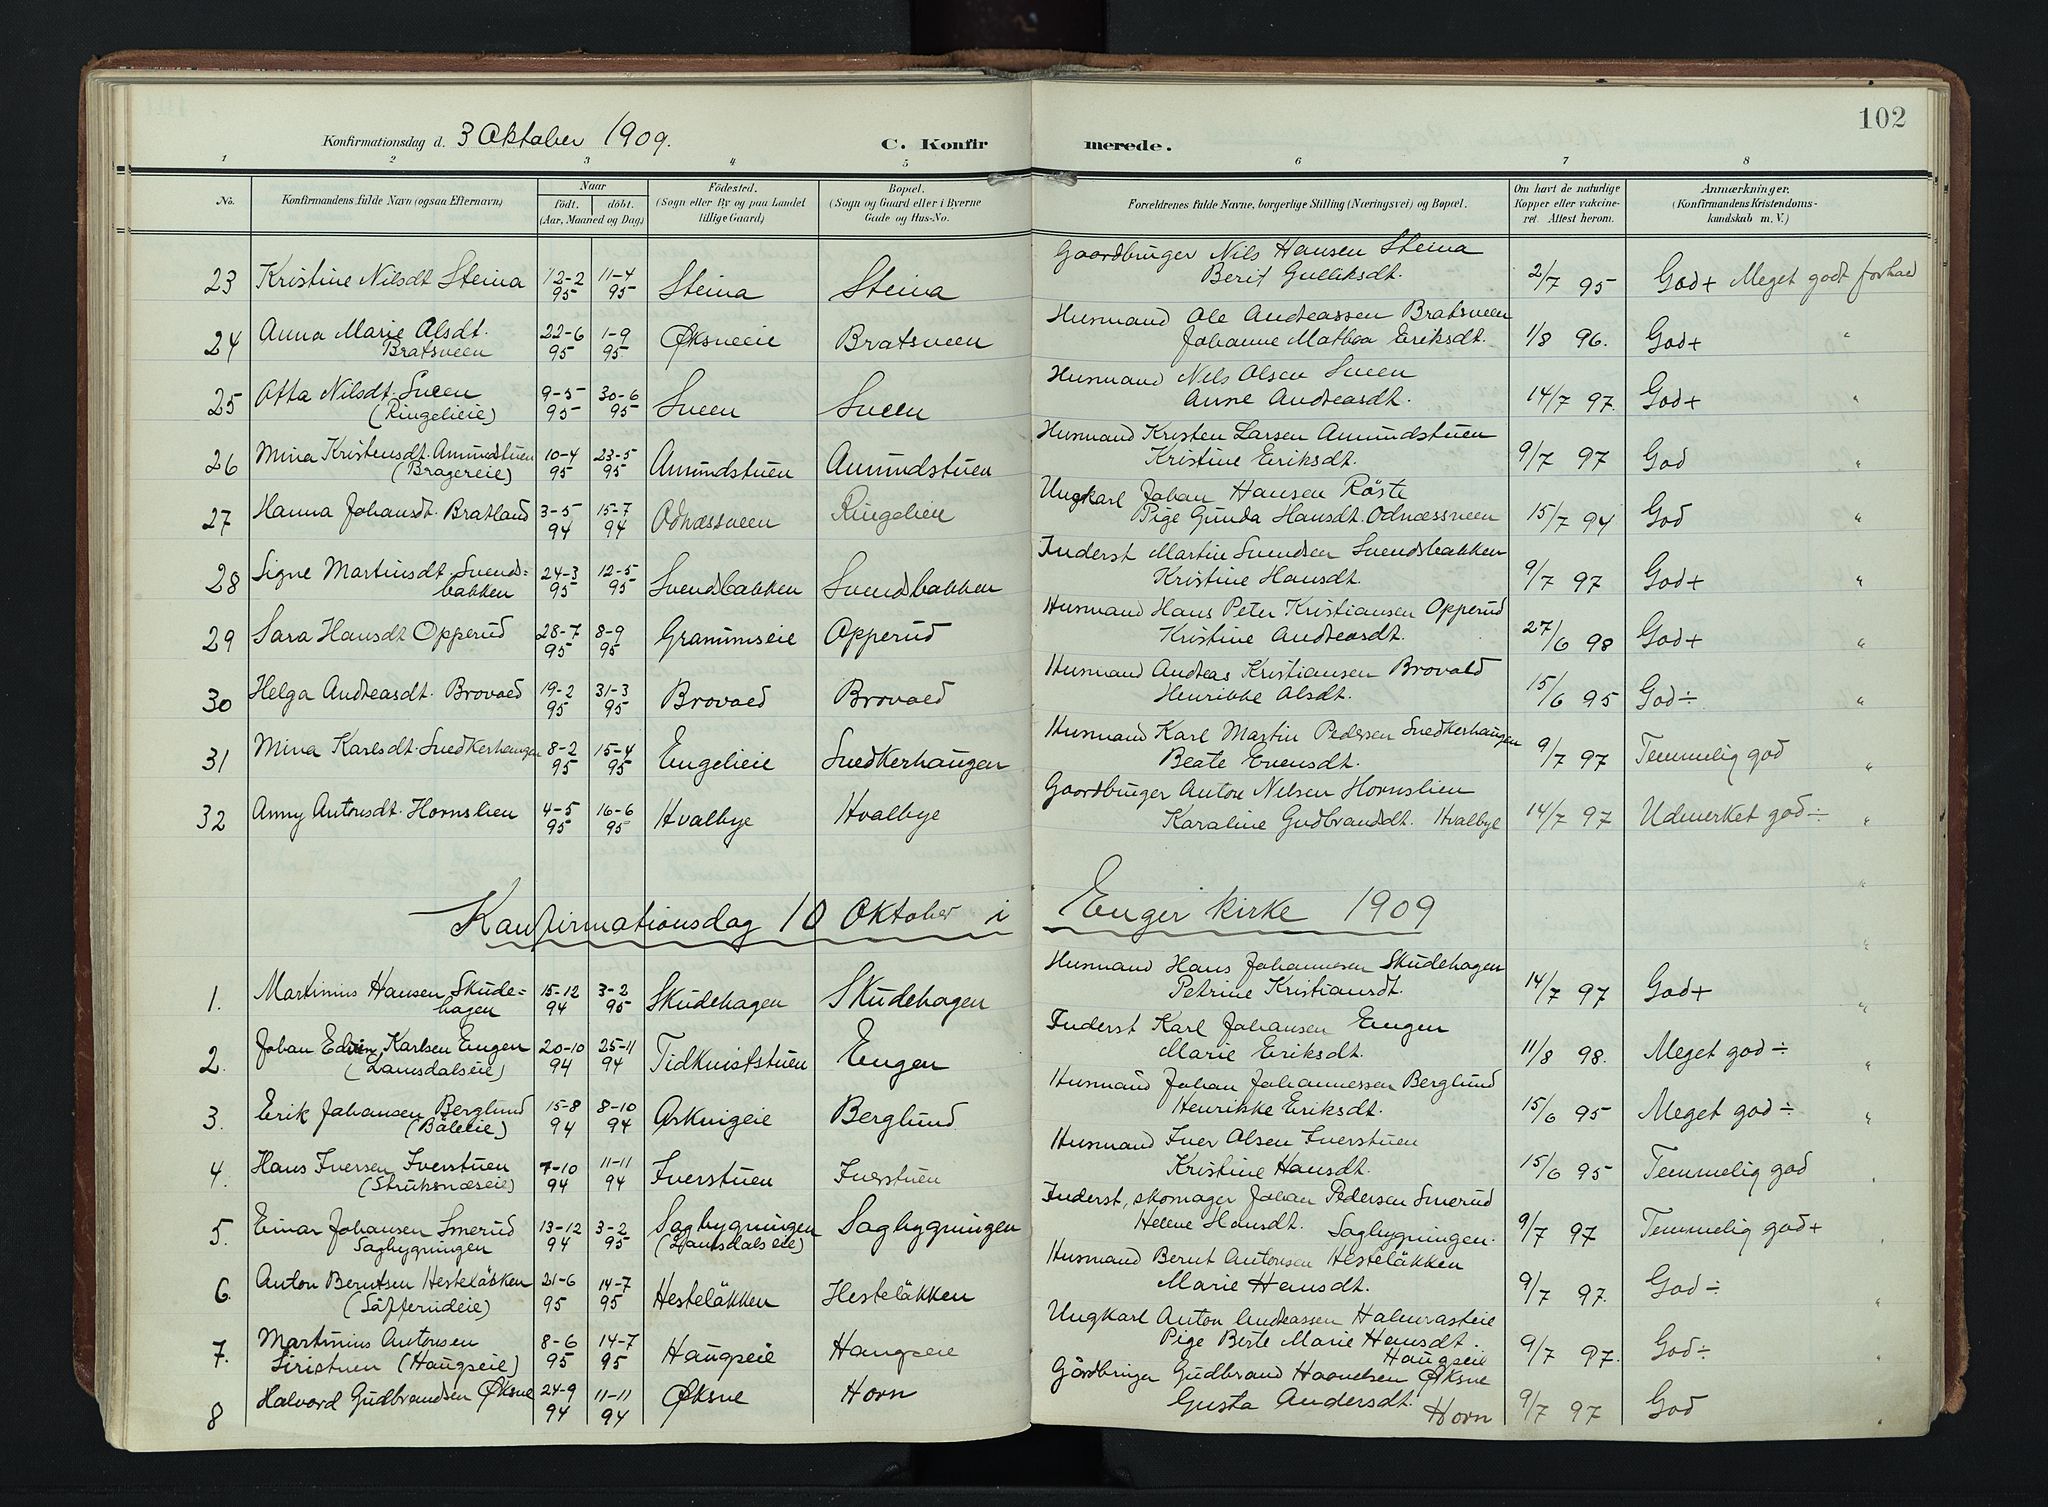 102
Konfirmationsdag d. 3 Oktober 1909. C. Konfirmerede.
1 2 3 4 5 6 7 8
No. Konfirmandens fulde Navn (ogsaa Efternavn) Naar födt. döbt. (Aar, Maaned og Dag) Födested. (Sogn eller By og paa Landet tillige Gaard) Bopæl. (Sogn og Gaard eller i Byerne Gade og Hus-No. Forældrenes fulde Navne, borgerlige Stilling (Næringsvei) og Bopæl. Om havt de naturlige Kopper eller vakcineret. Attest herom. Anmærkninger. (Konfirmandens Kristendomskundskab m. V.)
23 Kristine Nilsdt Steina 12-2 95 11-4 95 Steina Steina Gaardbruger Nils Hansen Steina
Berit Gulliksdt. 2/7 95 God+ Meget godt forhold
24 Anna Marie Olsdt. Bratsveen 22-6 95 1-9 95 Øksneeie Bratsveen Husmand Ole Andreassen Bratsveen
Johanne Mathea Eriksdt. 1/8 96. God+ "
25 Otta Nilsdt. Sveen (Ringelieie) 9-5 95 30-6 95 Sveen Sveen Husmand Nils Olsen Sveen
Anne Andreasdt. 14/7 97. God+ "
26 Mina Kristensdt. Amundstuen (Bragereie) 10-4 95 23-5 95 Amundstuen Amundstuen Husmand Kristen Larsen Amundstuen
Kristine Eriksdt. 9/7 97 God "
27 Hanna Johansdt. Bratland 3-5 94 15-7 94 Odnæssveen Ringelien Ungkarl Johan Hansen Röste
Pige Gunda Hansdt. Odnæssveen 15/7 94 God "
28 Signe Martinsdt. Svends=bakken 24-3 95 12-5 95 Svendsbakken Svendsbakken Inderst Martin Svendsen Svendsbakken
Kristine Hansdt. 9/7 97 God+ "
29 Sara Hansdt Opperud 28-7 95 8-9 95 Grammseie Opperud Husmand Hans Peter Kristiansen Opperud
Kristine Andreasdt. 27/6 98 God+ "
30 Helga Andreasdt. Brovold 19-2 95 31-3 95 Brovold Brovold Husmand Andreas Kristiansen Brovold
Henrikke Olsdt. 15/6 95 God÷ "
31 Mina Karlsdt. Snedkerhaugen 8-2 95 15-4 95 Engelieie Snedkerhaugen Husmand Karl Martin Pedersen Snedkerhaugen
Beate Evensdt. 9/7 97 Temmelig god "
32 Anny Antonsdt. Hornslien 4-5 95 16-6 95 Hvalbye Hvalbye Gaardbruger Anton Nilsen Hornslien
Karaline Gudbrandsdt. Hvalbye 14/7 97 Udmerket god÷ "
Konfirmationsdag 10 Oktober i Enger kirke 1909
1. Martinius Hansen Skude=hagen 15-12 94 3-2 95 Skudehagen Skudehagen Husmand Hans Johannesen Skudehagen
Petrine Kristiansdt. 14/7 97 God+ "
2. Johan Edvin Karlsen Engen (Lansdalseie) 20-10 94 25-11 94 Tidkviststuen Engen Inderst Karl Johansen Engen
Marie Eriksdt. 11/8 98. Meget god÷ "
3. Erik Johansen Berglund (Båleeie) 15-8 94 8-10 94 Askvigeie Berglund Husmand Johan Johannessen Berglund
Henrikke Eriksdt. 15/6 95 Meget god÷ "
4. Hans Iversen Iverstuen (Struksnæseie) 7-10 94 11-11 94 Iverstuen Iverstuen Husmand Iver Olsen Iverstuen
Kristine Hansdt. 15/6 95 Temmelig god "
5. Einar Johansen Smerud Sagbygningen 13-12 94 3-2 95 Sagbygningen (Lansdalseie) Sagbygningen Inderst, skomager Johan Pedersen Smerud
Helene Hansdt. Sagbygningen. 9/7 97 Temmelig god+ "
6. Anton Berntsen Hesteläkken (Säfferudeie) 21-6 95 14-7 95 Hesteläkken Hesteläkken Husmand Bernt Antonsen Hesteläkken
Marie Hansdt. 9/7 97. God÷ "
7. Martinius Antonsen Siristuen (Haugseie) 8-6 95 14-7 95 Haugseie Haugseie Ungkarl Anton Andreassen Halmrasteie
Pige Berte Marie Hansdt. Haugseie 9/7 97. God÷ "
8 Halvord Gudbrandsen Øksne 24-9 94 11-11 94 Øksne Horn Gårdbruger Gudbrand Øksne
Gusta Andersdt. Horn 9/7 97 God "